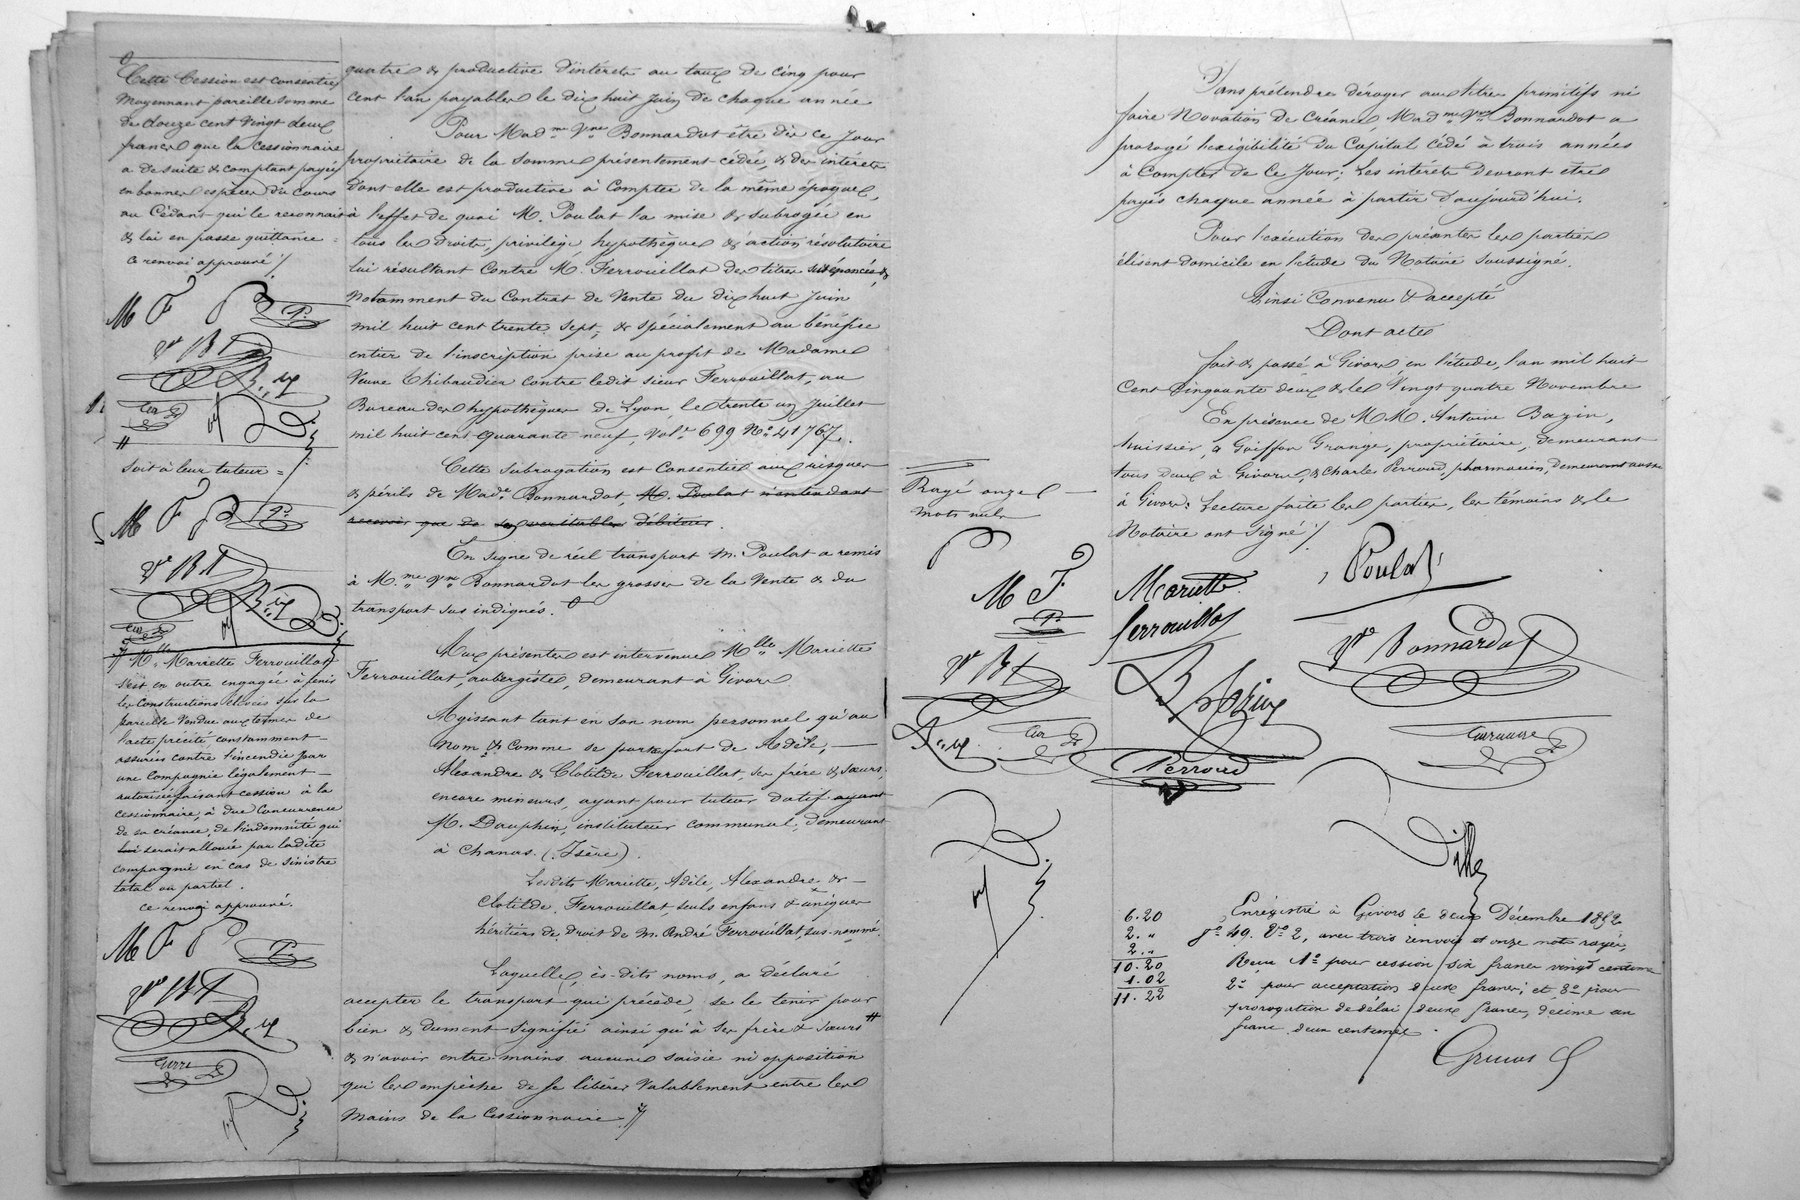 Cette Cession est consentie
moyennant pareille somme
de douze cent vingt deux
francs que la cessionnaire
a de suite & comptant payée
en bonnes espèces du cours
au Cédant qui le reconnait
& lui en passe quittance =
ce renvoi approuvé /
M F P P.
Vve B t
B. in
Cur
D.
#
soit à leur tuteur =
M F P P.
Vve B t
B. in
Cur
D.
// Mlle Mariette Ferrouillat
s'est en outre engagée à tenir
les Constructions élevées sur la
parcelle Vendue aux termes de
l'acte précité constamment
assurées contre l'incendie par
une Compagnie légalement
autorisée faisant cession à la
cessionnaire, à due Concurrence
de sa créance, de l'indemnité qui
lui serait allouée par ladite
compagnie en cas de sinistre
total ou partiel.
ce renvoi approuvé.
M F P P.
Vve B t
B. in
Curr
D.
quatre & productive d'intérets au taux de cinq pour
cent l'an payables le dix huit Juin de chaque année
Pour Madme Vve Bonnardot être dès ce Jour
propriétaire de la Somme présentement cédée, & des intérets
dont elle est productive à Compter de la même époque,
à l'effet de quoi M. Poulat l'a mise & subrogée en
tous les droits, privilège, hypothèques & action résolutoire
lui résultant Contre M. Ferrouillat des titres sus énoncés, &
Notamment du Contrat de Vente du dix huit Juin
mil huit cent trente sept, & spécialement au bénéfice
entier de l'inscription prise au profit de Madame
Veuve Thibaudier contre ledit sieur Ferrouillat, au
Bureau des hypothèques de Lyon, le trente un Juillet
mil huit cent quarante neuf, Vol. 699 No. 41767.
Cette Subrogation est Consentie aux risques
& périls de Made Bonnardot, M. Poulat n'entendant
recevoir que de ses véritables débiteurs.
En Signe de réel transport M. Poulat a remis
à M.me Vve Bonnardot les grosses de la Vente & du
transport sus indiqués.
Aux présentes est intervenue Mlle Mariette
Ferrouillat, aubergiste, demeurant à Givors
Agissant tant en son nom personnel qu'au
nom & comme se portant fort de Adèle,
Alexandre & Clotilde Ferrouillat, ses frère & Sœurs
encore mineurs, ayant pour tuteur datif ayant
M. Dauphin, instituteur communal, demeurant
à Chanas. (Isère).
Lesdits Mariette, Adèle, Alexandre &
Clotilde Ferrouillat, seuls enfans & uniques
héritiers de Droit de M. André Ferrouillat, sus-nommé.
Laquelle, ès-dits noms, a déclaré
accepter le transport qui précède, se le tenir pour
bien & dument Signifié ainsi qu'à ses frère & Sœurs #
& n'avoir entre mains aucune saisie ni opposition
qui les empêche de se libérer Valablement entre les
mains de la Cessionnaire. //
Sans prétendre déroger aux titres primitifs ni
faire Novation de Créance, Madme Vve Bonnardot a
prorogé l'exigibilité du Capital cédé à trois années
à Compter de ce Jour; Les intérêts Devront être
payés chaque année à partir d'aujourd'hui.
Pour l'exécution des présentes les parties
élisent domicile en l'étude du Notaire Soussigné.
Ainsi Convenu & accepté
Dont acte
fait & passé à Givors, en l'étude, l'an mil huit
Cent Cinquante deux & le Vingt quatre Novembre
En présence de M.M. Antoine Bazin,
huissier, & Goiffon Grange, propriétaire, demeurant
tous deux à Givors, & Charles Perroud, pharmacien, demeurant aussi
à Givors; Lecture faite les parties, les témoins & le
Notaire ont signé /
Rayé onze
mots nuls
P
M F.
P.
Vve B t
B. in
Cur
D.
Mariette
ferrouillat
Poulat
Vve Bonnardot
Bazin
Perroud
Dille
6.20
2. "
2. "
10.20
1.02
11.22
Enregistré à Givors le deux Décembre 1852
fo 49. Vo 2, avec trois renvois et onze mots rayés,
Reçu 1o pour cession six francs vingt centimes
2o pour acceptation deux francs; et 3o pour
prorogation de délai deux francs, décime un
franc deux centimes.